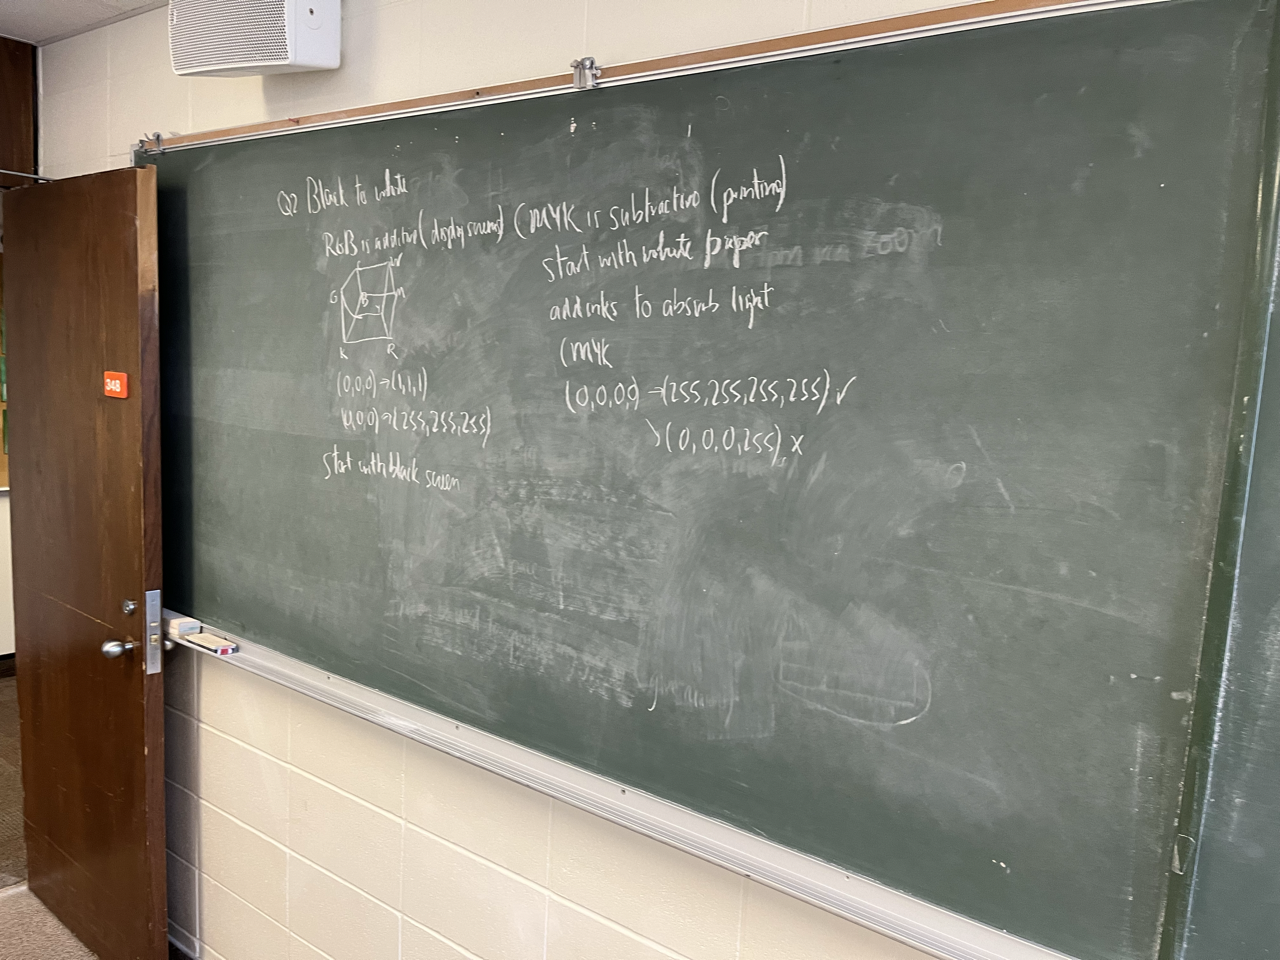 Q2 Black to white
RGB is additive (display screens)
W
G
B
M
K
R
(0,0,0)→(1,1,1)
(0,0,0)→(255,255,255)
start with black screen
CMYK is subtractive (printing)
start with white paper
add inks to absorb light
CMYK
(0,0,0,0)→(255,255,255,255)✓
(0,0,0,255) x
348